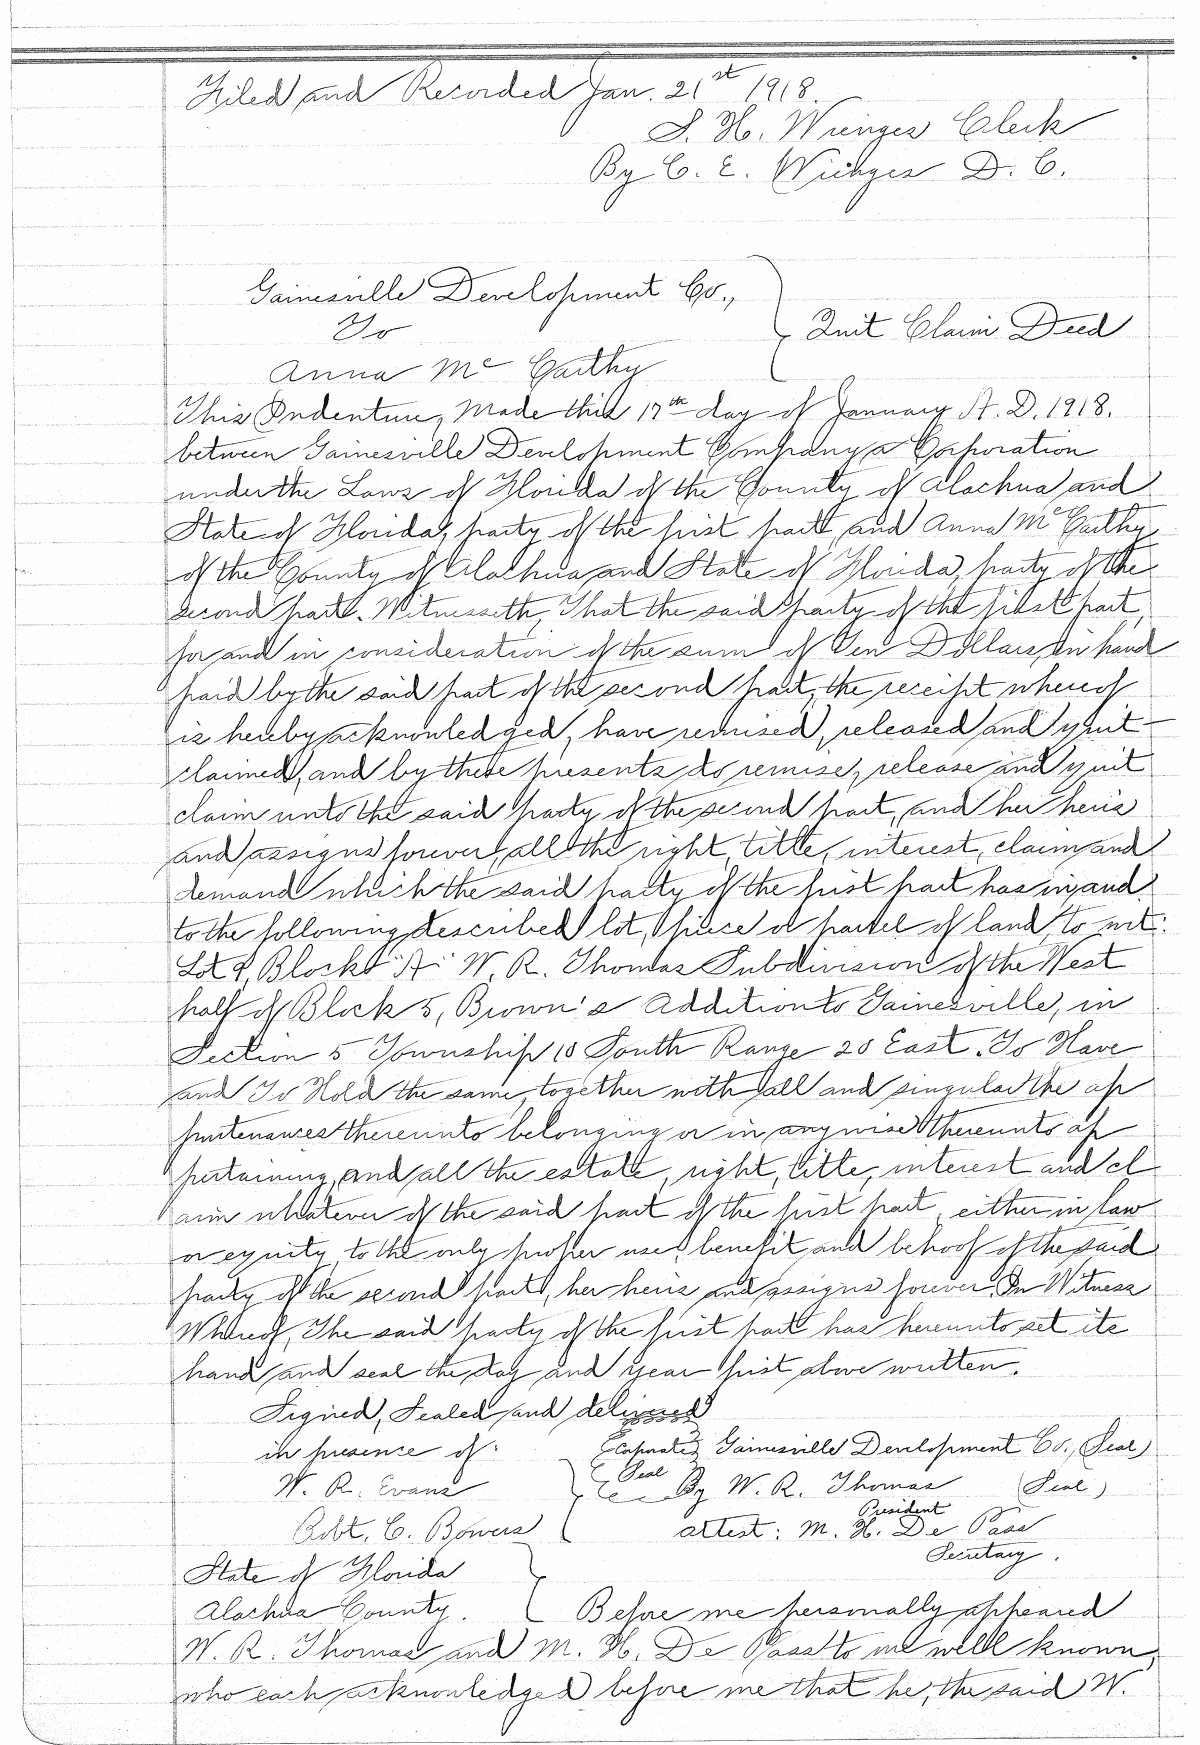 Filed and Recorded Jan. 21st 1918.
S. H. Wienges Clerk
By C. E. Wienges D. C.
Gainesville Development Co.,
To
Quit Claim Deed
Anna Mc Carthy
This Indenture, Made this 17th day of January A. D. 1918.
between Gainesville Development Company a Corporation
under the Laws of Florida of the County of Alachua and
State of Florida, party of the first part and Anna Mc Carthy
of the County of Alachua and State of Florida, party of the
second part. Witnesseth, That the said party of the first part,
for and in consideration of the sum of Ten Dollars, in hand
paid by the said part of the second part, the receipt whereof
is hereby acknowledged, have remised, released and quit-
claimed, and by these presents do remise, release and quit
claim unto the said party of the second part, and her heirs
and assigns forever, all the right, title, interest, claim and
demand which the said party of the first part has in and
to the following described lot, piece or parcel of land, to wit:
Lot Block "A" W. R. Thomas Subdivision of the West
half of Block 5, Brown's Addition to Gainesville, in
Section 5 Township 10 South Range 20 East. To Have
and To Hold the same, together with all and singular the ap
purtenances thereunto belonging or in anywise thereunto ap
pertaining, and all the estate, right, title, interest and cl
aim whatever of the said part of the first part, either in law
or equity, to the only proper use, benefit and behoof of the said
party of the second part, her heirs and assigns forever. In Witness
Whereof, The said party of the first part has hereunto set its
hand and seal the day and year first above written.
Signed, Sealed and delivered
in presence of: Corporate Gainesville Development Co., (Seal)
W. R. Evans Seal By W. R. Thomas (Seal)
President
Robt. C. Bowers attest: M. H. De Pass
Secretary.
State of Florida
Alachua County. Before me personally appeared
W. R. Thomas and M. H. De Pass to me well known,
who each acknowledged before me that he, the said W.